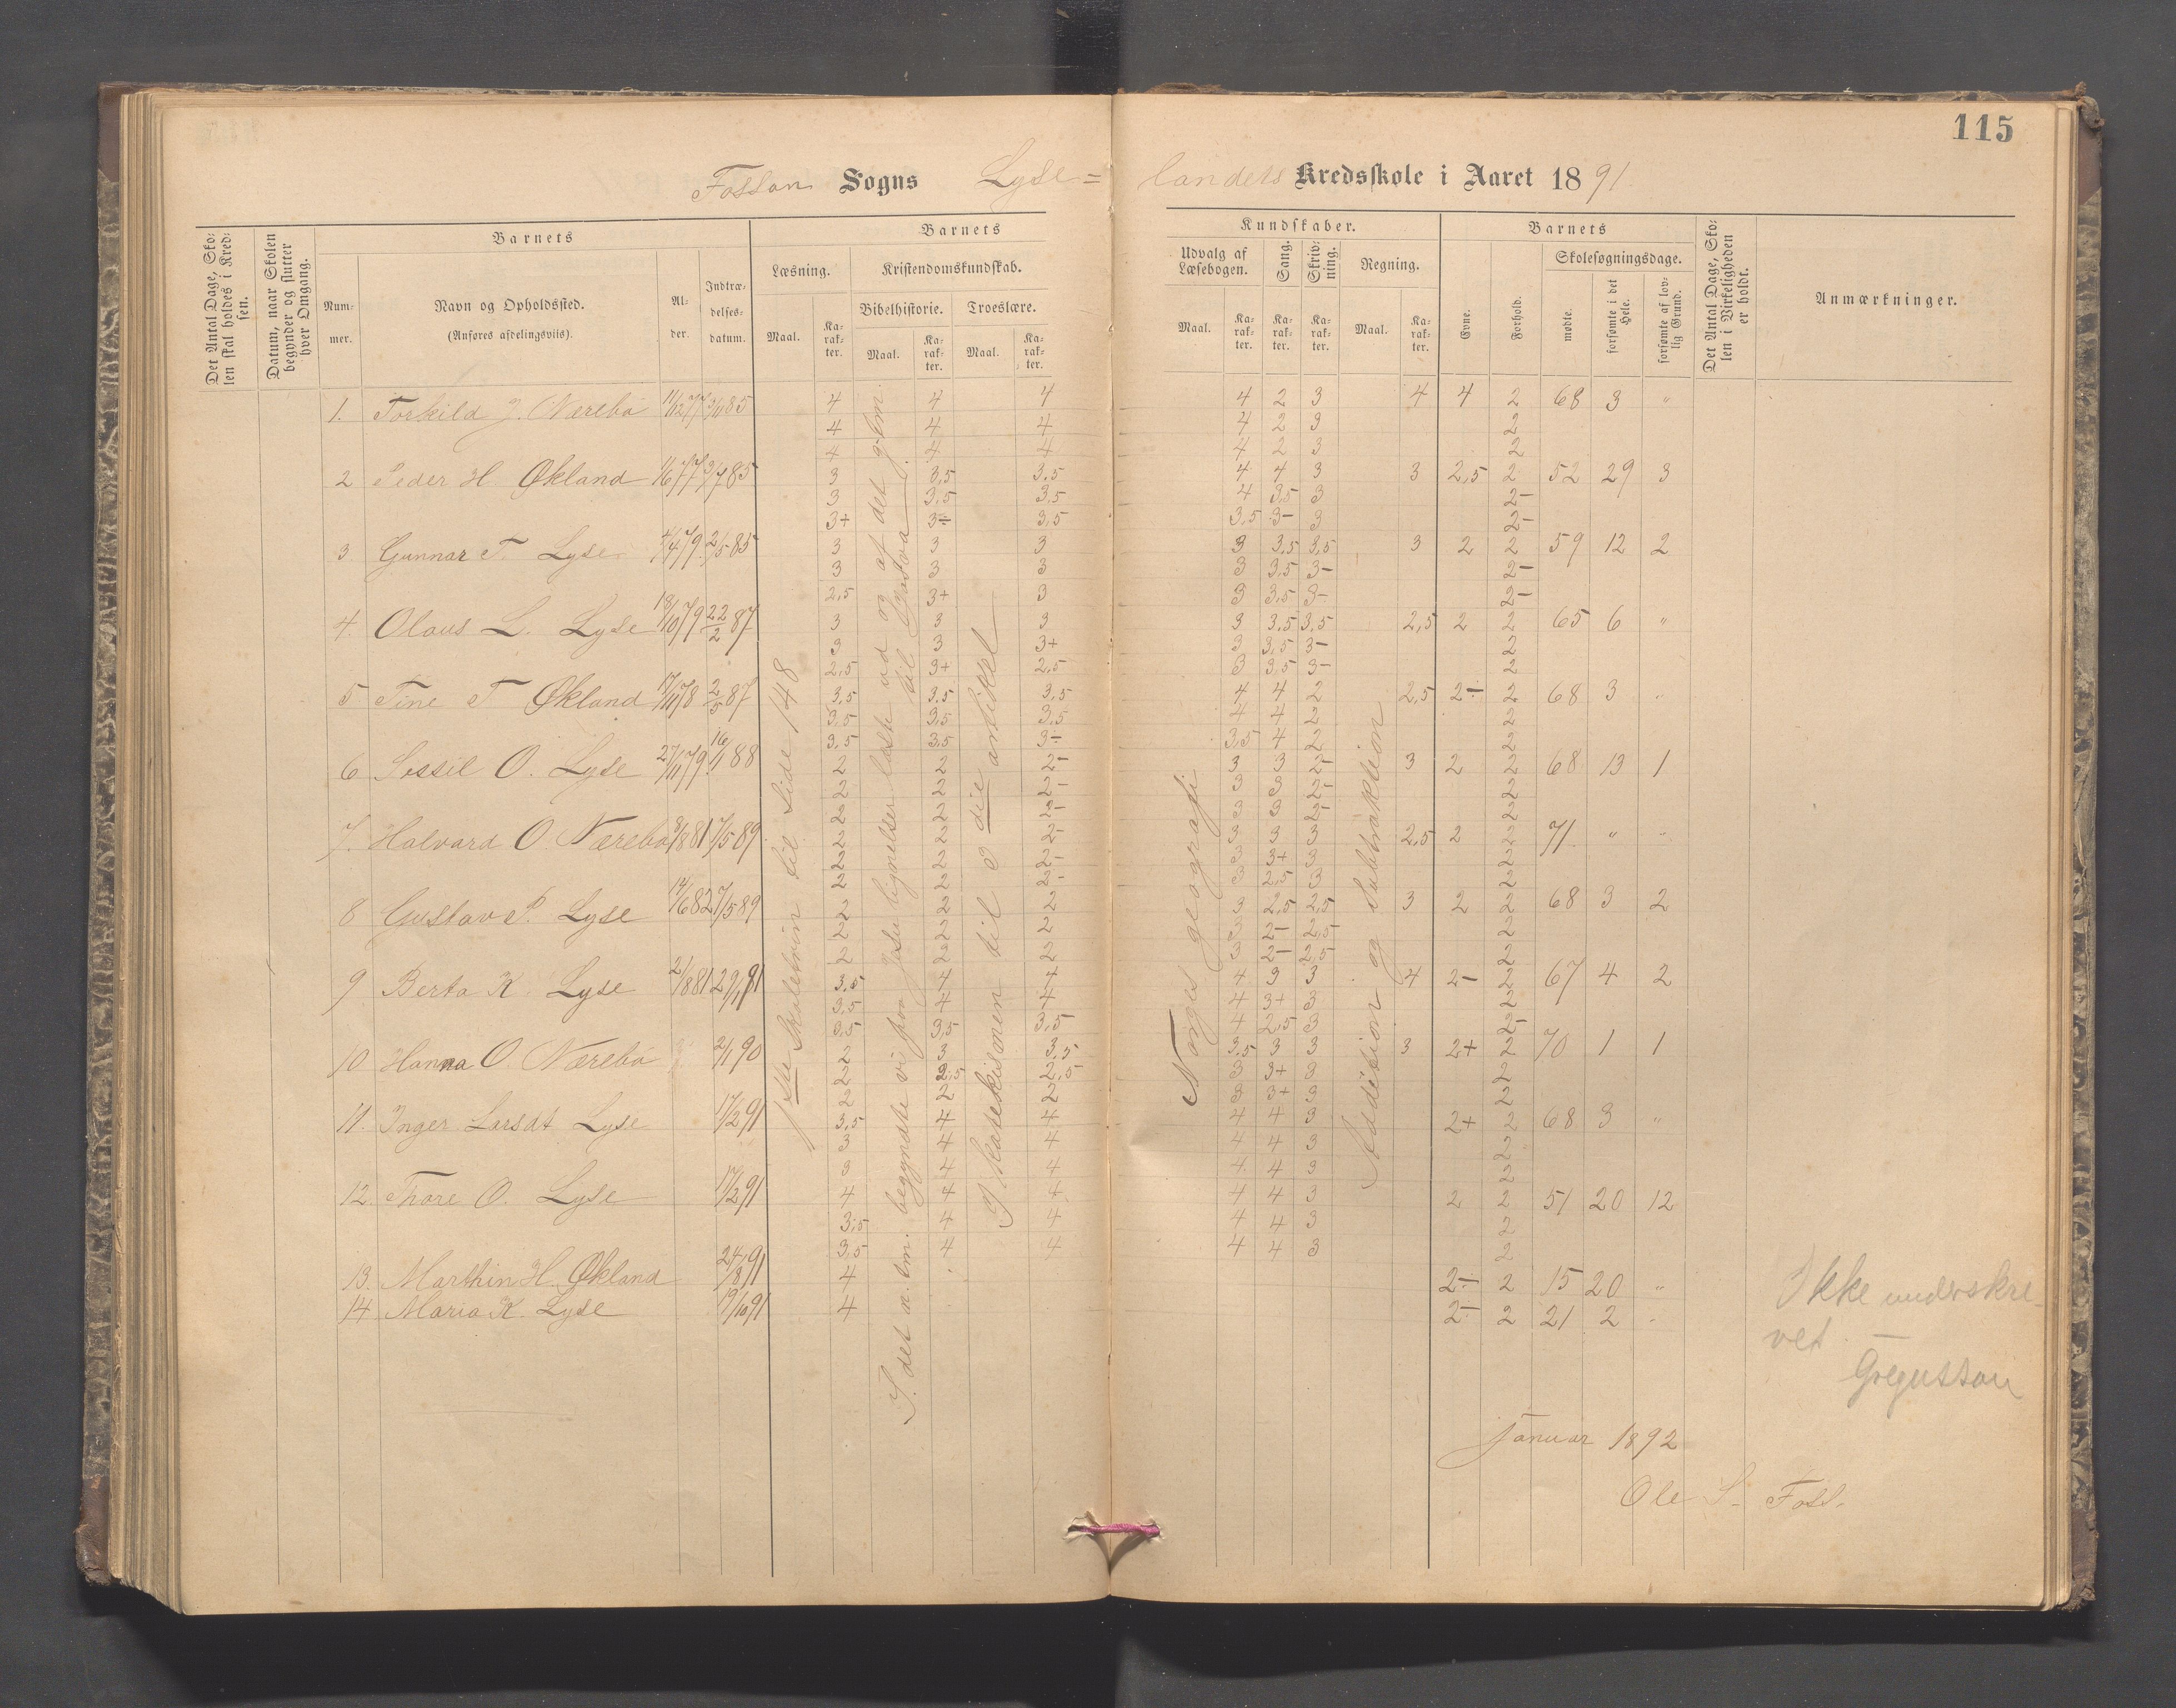 115
Fossan Sogns Lyse= landets Kredsskole i Aaret 1891
Det Antal Dage, Skolen skal holdes i Kredsen.
Datum, naar Skolen begynder og slutter hver Omgang.
Barnets
Nummer.
Navn og Opholdssted.
(Anføres afdelingsvils).
Alder.
Indtrædelsesdatum.
Barnets
Læsning.
Maal.
Karakter.
Kristendomskundskab.
Bibelhistorie.
Maal.
Karakter.
Troeslære.
Maal.
Karakter.
Kundskaber.
Udvalg af Læsebogen.
Maal.
Karakter.
Sang.
Karakter.
Skrivning.
Karakter.
Regning.
Maal.
Karakter.
Barnets
Evne.
Forhold.
Skolesøgningsdage.
mødte.
forsømte i det Hele.
forsømte af lovlig Grund.
Det Antal Dage, Skolen i Virkeligheden er holdt.
Anmærkninger.
1. Torkild J. Nærebø 11/12 77 3/11 85 4 4 4 4 2 3 4 4 2 68 3 "
4 4 4 4 2 3 2
4 4 4 4 2 3 2
2 Peder H. Økland 1/6 77 3/7 85 3 3,5 3,5 4 4 3 3 2,5 2 52 29 3
3 3,5 3,5 4 3,5 3 2-
3+ 3- 3,5 3,5 3- 3 2-
3 Gunnar T. Lyse 4/4 79 2/5 85 3 3 3 3 3,5 3,5 3 2 2 59 12 2
3 3 3 3 3,5 3- 2-
2,5 3+ 3 3 3,5 3- 2-
4. Olaus L. Lyse 18/10 79 22/2 87 3 3 3 3 3,5 3,5 2,5 2 2 65 6 "
3 3 3+ 3 3,5 3- 2
2,5 3+ 2,5 3 3,5 3- 2
5 Tine T Økland 17/11 78 2/5 87 3,5 3,5 3,5 4 4 2 2,5 2- 2 68 3 "
3,5 3,5 3,5 4 4 2 2
3,5 3,5 3- 3,5 4 2 2
6 Sissil O. Lyse 27/11 79 16/11 88 2 2 2- 3 3 2- 3 2 2 68 13 1
2 2 2- 3 3 2- 2
2 2 2- 3 3 2- 2
7. Halvard O. Nærebø 3/8 81 7/5 89 2 2 2- 3 3 3 2,5 2 2 71 " "
2 2 2- 3 3+ 3 2
2 2 2- 3 2,5 3 2
8 Gustav P. Lyse 14/6 82 7/5 89 2 2 2 3 2,5 2,5 3 2 2 68 3 2
2 2 2 3 2- 2,5 2
2 2 2 3 2- 2,5 2
9 Berta K. Lyse 2/8 81 29/1 91 3,5 4 4 4 3 3 4 2- 2 67 4 2
3,5 4 4 4 3+ 3 2
3,5 3,5 3,5 4 2,5 3 2-
10 Hanna O. Nærebø 2/1 90 2 3 3,5 3,5 3 3 3 2+ 2 70 1 1
2 2,5 2,5 3 3+ 3 2
2 2 2 3 3+ 3 2
11. Inger Larsdt Lyse 17/2 91 3,5 4 4 4 4 3 2+ 2 68 3 "
3 4 4 4 4 3 2
3 4 4 4 4 3 2
12. Thore O. Lyse 17/2 91 4 4 4 4 4 3 2 2 51 20 12
3,5 4 4 4 4 3 2
3,5 4 4 4 4 3 2
13. Marthin H. Økland 24/8 91 4 2- 2 15 20 "
14 Maria K. Lyse 19/10 91 4 2- 2 21 2 "
1ste Skoletrin til Side 148
I det n. tm. begyndte vi paa Jesu lignelser læste ud og af det gltm. til Gustava
I Katekismen til 3die artikkel
Norges geografi
Addition og Subtraktion
Ikke underskrevet. —
Gregussøn
Januar 1892
Ole S. Foss.